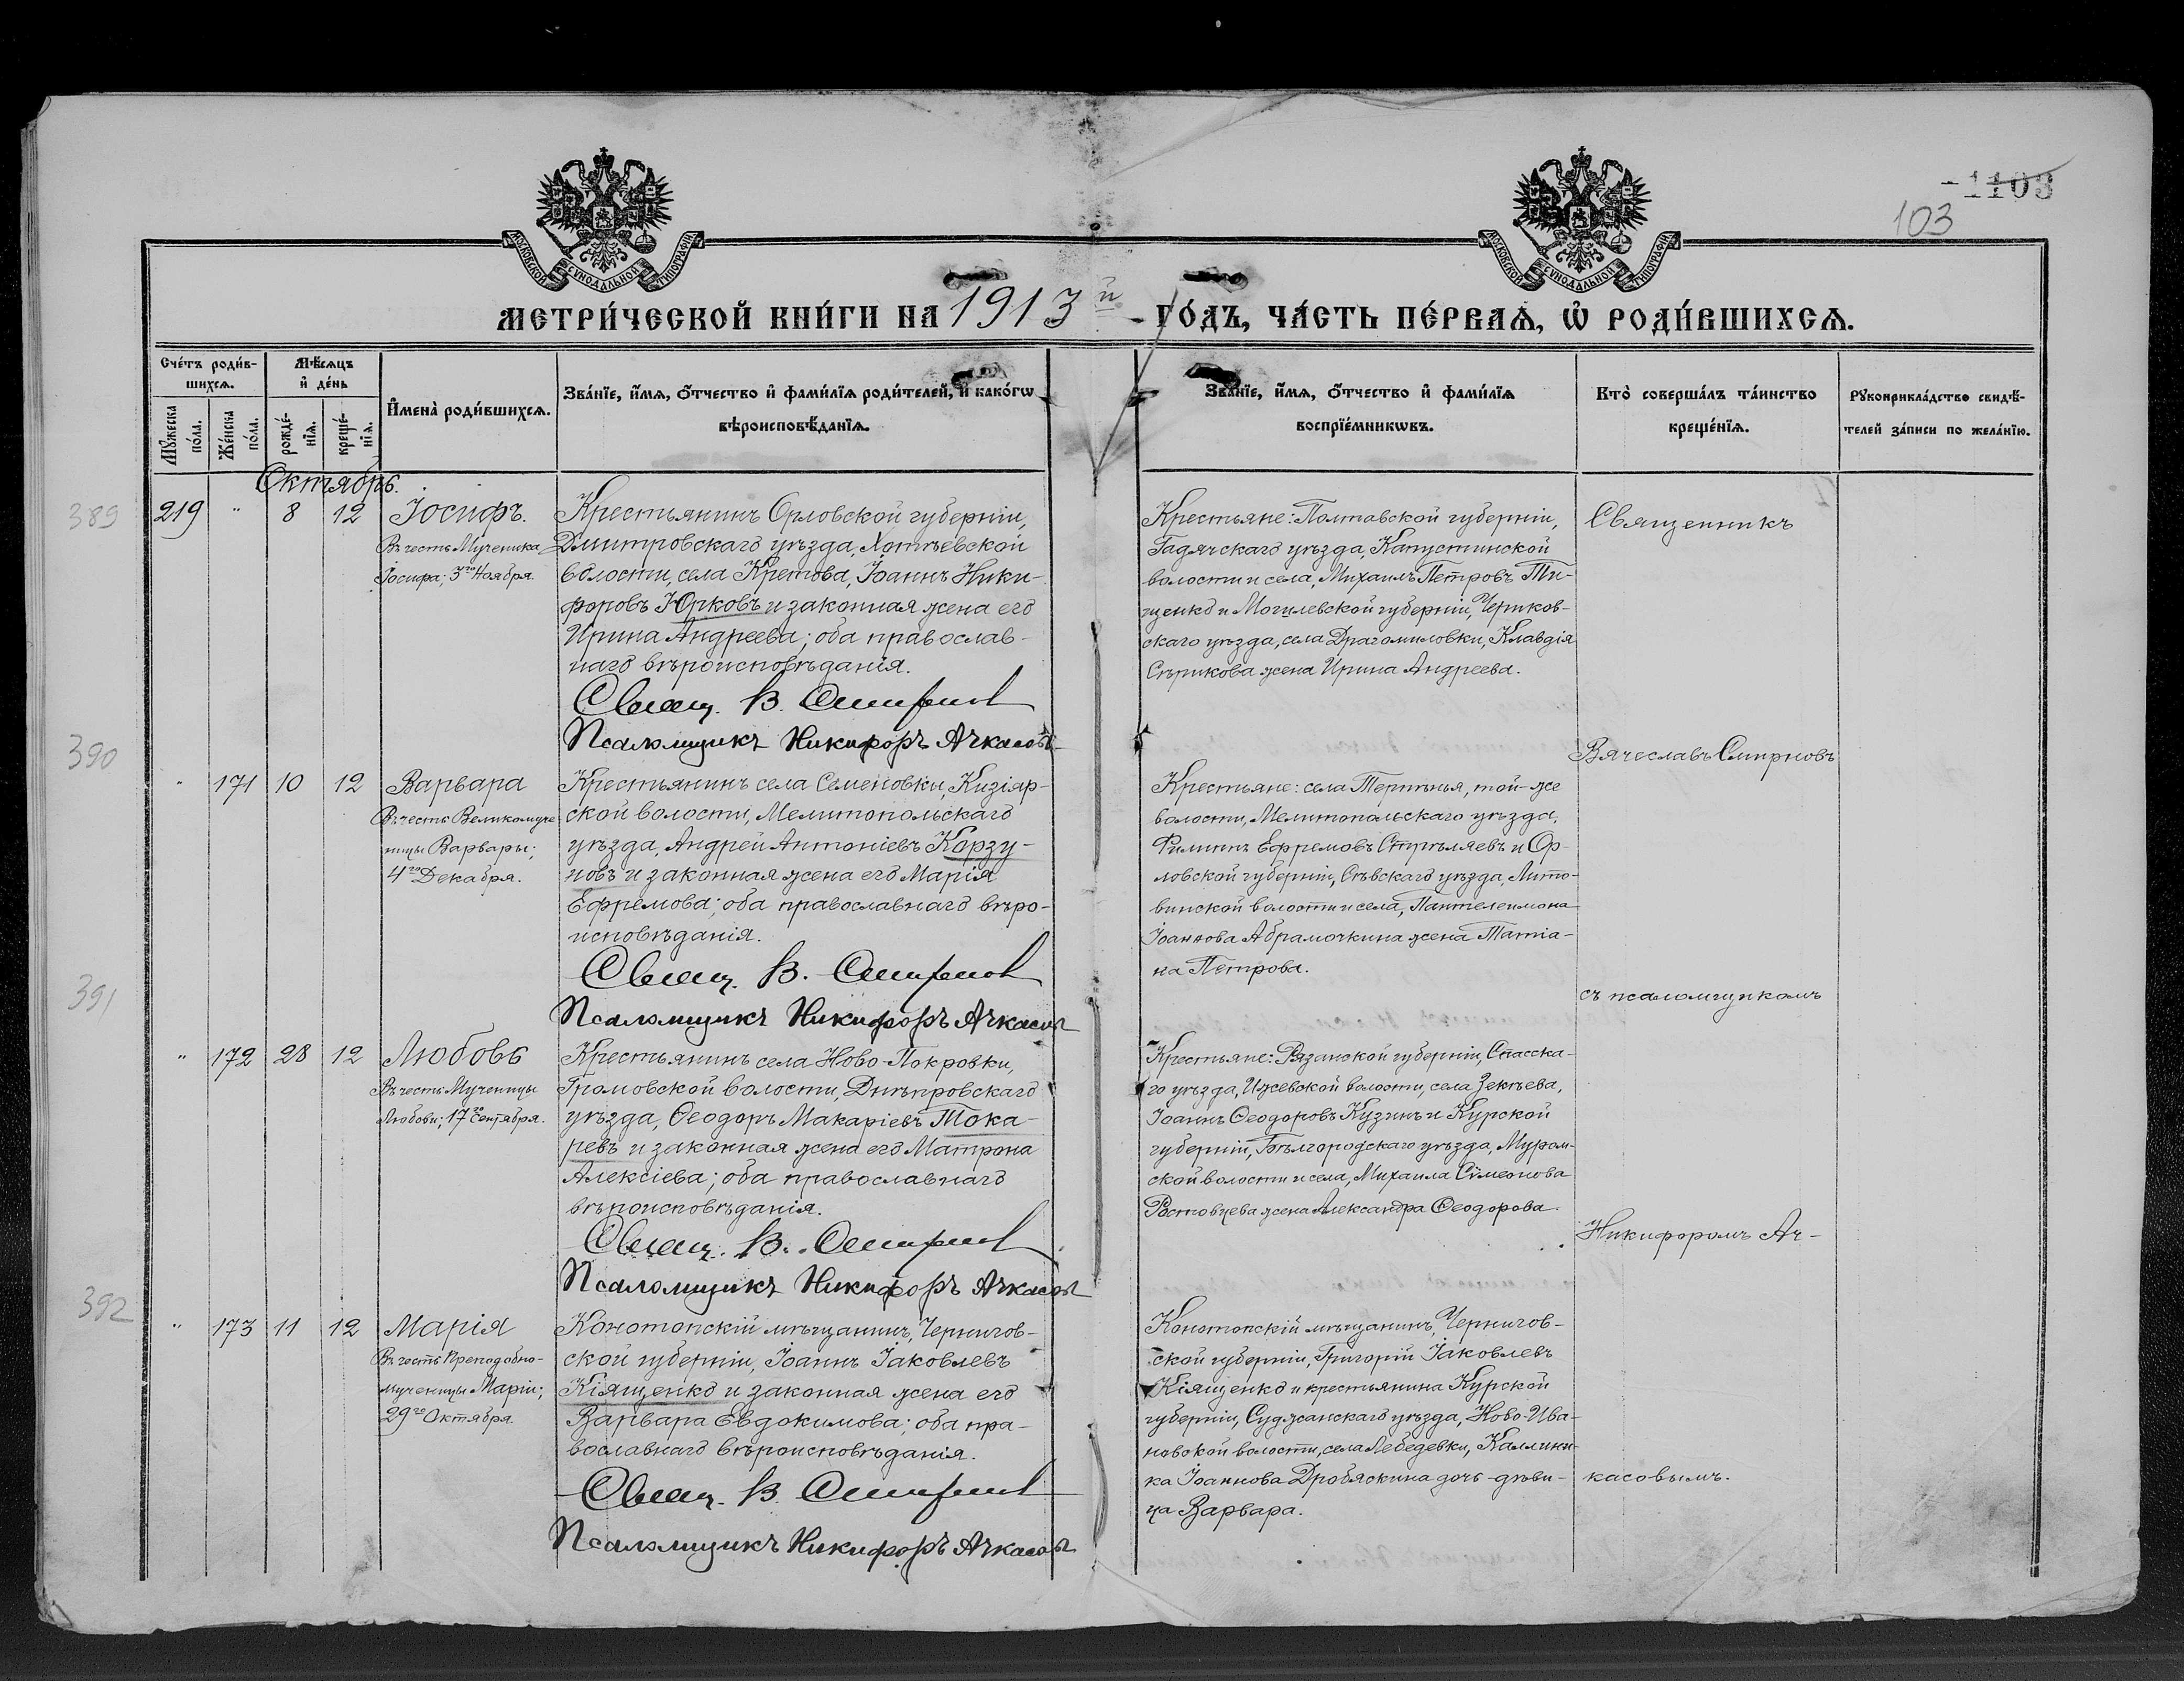 МОСКОВСКОЙ СѴНОДАЛЬНОЙ ТИПОГРАФІИ
МОСКОВСКОЙ СѴНОДАЛЬНОЙ ТИПОГРАФІИ
1103
103
МЕТРИ́ЧЕСКОЙ КНИ́ГИ НА 1913й ГО́ДЪ, ЧА́СТЬ ПЕ́РВАѦ, Ѡ҆ РОДИ́ВШИХСѦ.
Сче́тъ роди́в-
шихсѧ.
Мѣ́сѧцъ
и҆ де́нь
И҆мена̀ роди́вшихсѧ.
Зва́нїе, и҆́мѧ, ѻ҆́тчество и҆ фами́лїѧ роди́телей, и҆ како́гѡ
вѣроисповѣ́данїѧ.
Зва́нїе, и҆́мѧ, ѻ҆́тчество и҆ фами́лїѧ
воспрїе́мникѡвъ.
Кто̀ соверша́лъ та́инство
креще́нїѧ.
Рꙋкоприкла́дство свидѣ́-
телей за́писи по жела́нїю.
Мꙋ́жеска
по́ла.
Же́нска
по́ла.
рожде́-
нїѧ.
креще́-
нїѧ.
Октябрь.
389
219 " 8 12 Іосифъ.
Въ честь Мученика
Іосифа; 3го Ноября.
Крестьянинъ Орловской губерніи,
Дмитровскаго уѣзда, Хотѣевской
волости, села Кретова, Іоаннъ Ники-
форовъ Юрковъ и законная жена его
Ирина Андреева; оба православ-
наго вѣроисповѣданія.
Свящ. В. Смирнов
Псаломщикъ Никифоръ Ачкасовъ
Крестьяне: Полтавской губерніи,
Гадячскаго уѣзда, Капустинской
волости и села, Михаилъ Петровъ Ти-
щенко и Могилевской губерніи, Чериков-
скаго уѣзда, села Драгомиловки, Клавдія
Сѣрикова жена Ирина Андреева.
Священникъ
390
" 171 10 12 Варвара
Въ честь Великомуче
ницы Варвары;
4го Декабря.
Крестьянинъ села Семеновки, Кизіяр-
ской волости, Мелитопольскаго
уѣзда, Андрей Антоніевъ Корзу-
новъ и законная жена его Марія
Ефремова; оба православнаго вѣро-
исповѣданія.
Свящ. В. Смирнов
Псаломщикъ Никифоръ Ачкасовъ
Крестьяне: села Терпѣнья, той-же
волости, Мелитопольскаго уѣзда,
Филиппъ Ефремовъ Стрѣляевъ и Ор-
ловской губерніи, Сѣвскаго уѣзда, Лито-
винской волости и села, Пантелеимона
Іоаннова Абрамочкина жена Татіа-
на Петрова.
Вячеславъ Смирновъ
391
" 172 28 12 Любовь
Въ честь Мученицы
Любови; 17го Сентября.
Крестьянинъ села Ново-Покровки,
Громовской волости, Днѣпровскаго
уѣзда, Ѳеодоръ Макаріевъ Тока-
ревъ и законная жена его Матрона
Алексіева; оба православнаго
вѣроисповѣданія.
Свящ. В. Смирнов
Псаломщикъ Никифоръ Ачкасовъ
Крестьяне: Рязанской губерніи, Спасска-
го уѣзда, Ижевской волости, села Зекѣева,
Іоаннъ Ѳеодоровъ Кузинъ и Курской
губерніи, Бѣлгородскаго уѣзда, Муром-
ской волости и села, Михаила Симеонова
Ростовцева жена Александра Ѳеодорова.
съ псаломщикомъ
392
" 173 11 12 Марія
Въ честь Преподобно-
мученицы Маріи;
29го Октября.
Конотопскій мѣщанинъ, Чернигов-
ской губерніи, Іоаннъ Іаковлевъ
Кіященко и законная жена его
Варвара Евдокимова; оба пра-
вославнаго вѣроисповѣданія.
Свящ. В. Смирнов
Псаломщикъ Никифоръ Ачкасовъ
Конотопскій мѣщанинъ, Чернигов-
ской губерніи, Григорій Іаковлевъ
Кіященко и крестьянина Курской
губерніи, Суджанскаго уѣзда, Ново-Ива-
новской волости, села Лебедевки, Каллини-
ка Іоаннова Дробяскина дочь-дѣви-
ца Варвара.
Никифоромъ Ач-
касовымъ.